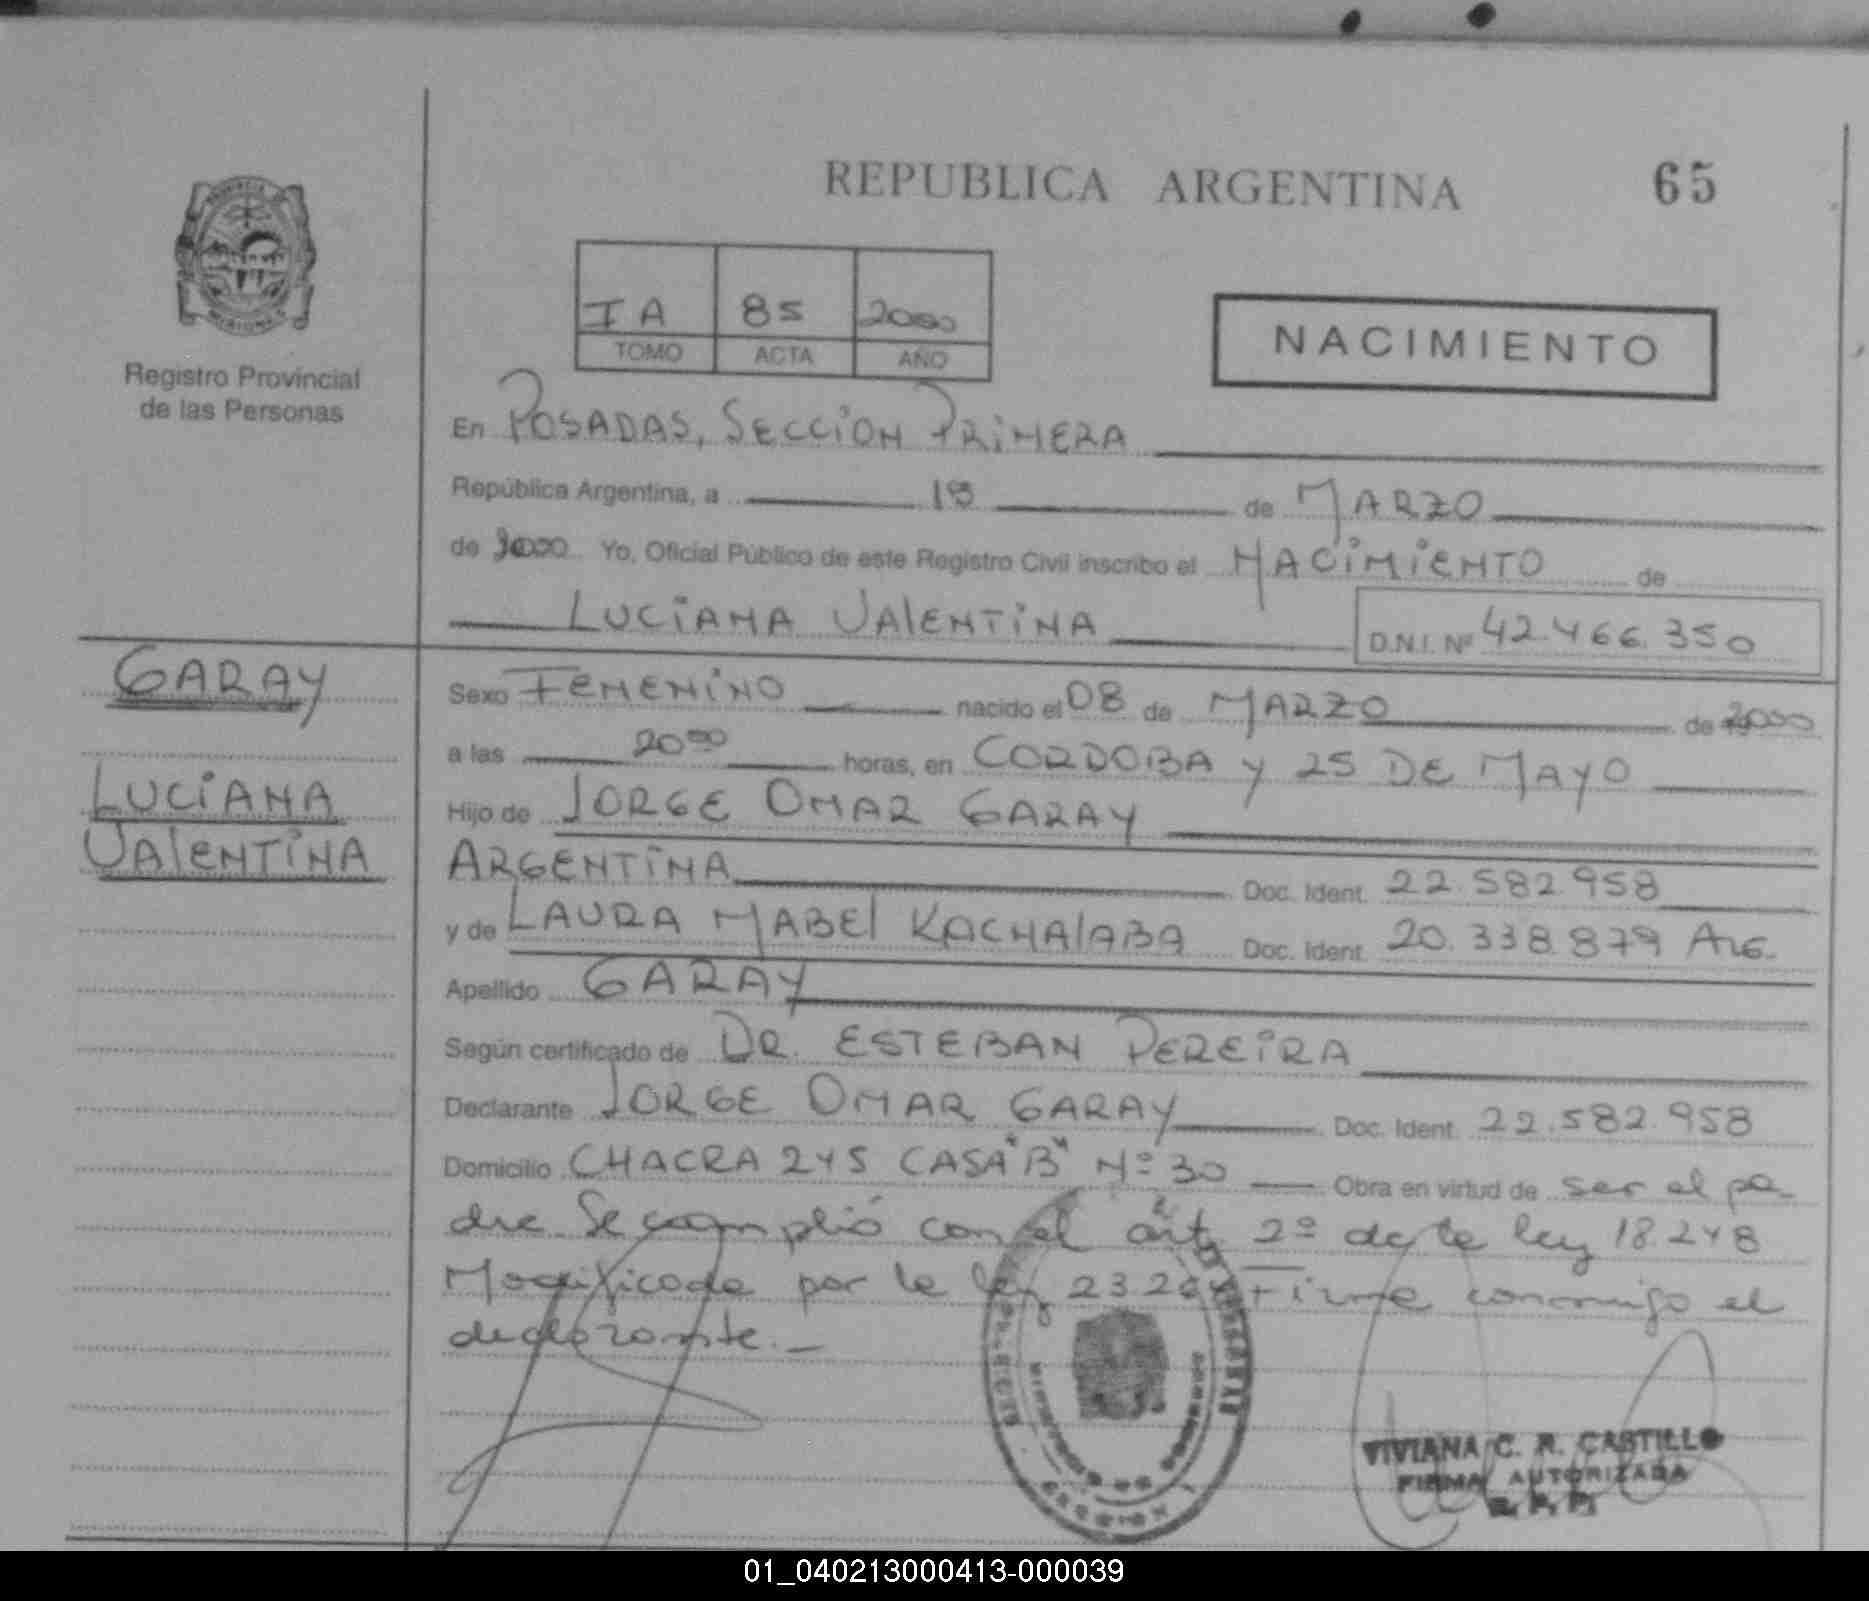 REPUBLICA ARGENTINA 65
PROVINCIA
MISIONES
Registro Provincial
de las Personas
IA 85 2000
TOMO ACTA AÑO
NACIMIENTO
En POSADAS, SECCION PRIMERA
República Argentina, a 13 de MARZO
de 2000 Yo, Oficial Público de este Registro Civil inscribo el NACIMIENTO de
LUCIANA VALENTINA D.N.I. Nº 42.466.350
GARAY
LUCIANA
VALENTINA
Sexo FEMENINO nacido el 08 de MARZO de 2000
a las 20 00 horas, en CORDOBA Y 25 DE MAYO
Hijo de JORGE OMAR GARAY
ARGENTINA Doc. Ident. 22.582.958
y de LAURA MABEL KACHALABA Doc. Ident. 20.338.879 ARG.
Apellido GARAY
Según certificado de DR. ESTEBAN PEREIRA
Declarante JORGE OMAR GARAY Doc. Ident. 22.582.958
Domicilio CHACRA 245 CASA "B" Nº 30 Obra en virtud de ser el pa-
dre Se complió con el art. 2º de la ley 18248
Modificada por la ley 23.264 Firma conmigo el
declarante.-
VIVIANA C. R. CASTILLO
FIRMA AUTORIZADA
R. P. P.
01_040213000413-000039